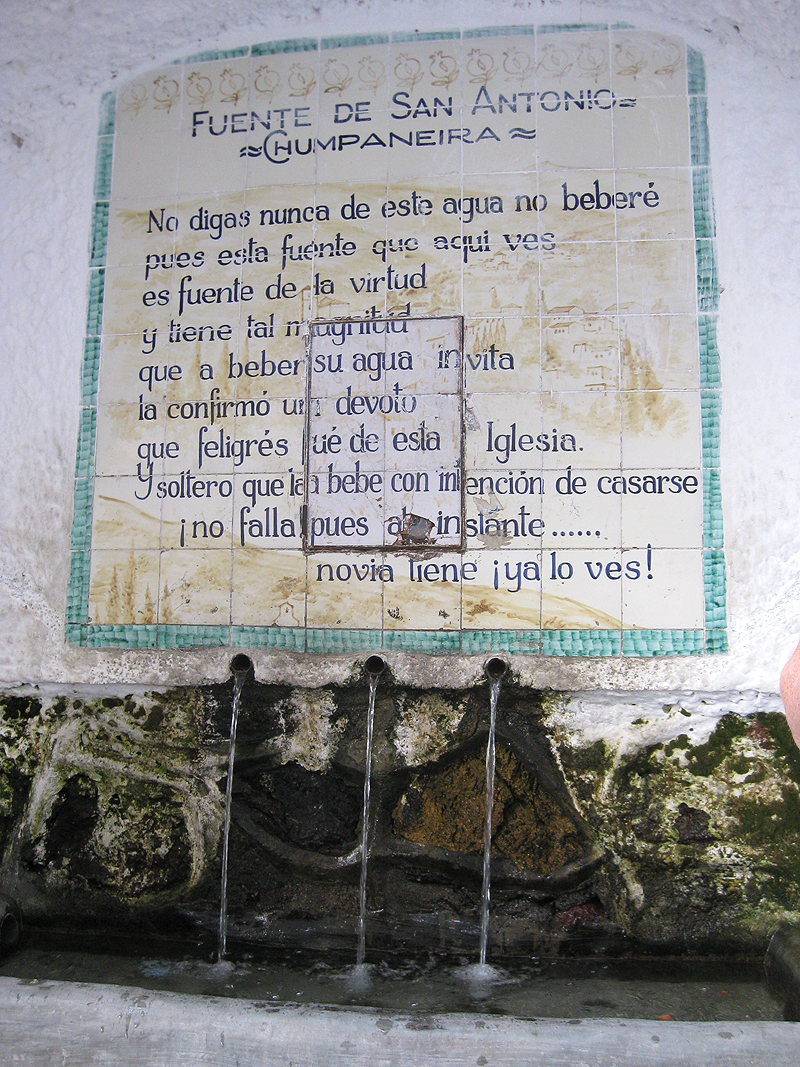 FUENTE DE SAN ANTONIO
CHUMPANEIRA
No digas nunca de este agua no beberé
pues esta fuente que aqui ves
es fuente de la virtud
y tiene tal magnitud
que a beber su agua invita
la confirmó un devoto
que feligrés ué de esta Iglesia.
Y soltero que la bebe con intención de casarse
¡no falla! pues al instante......
novia tiene ¡ya lo ves!